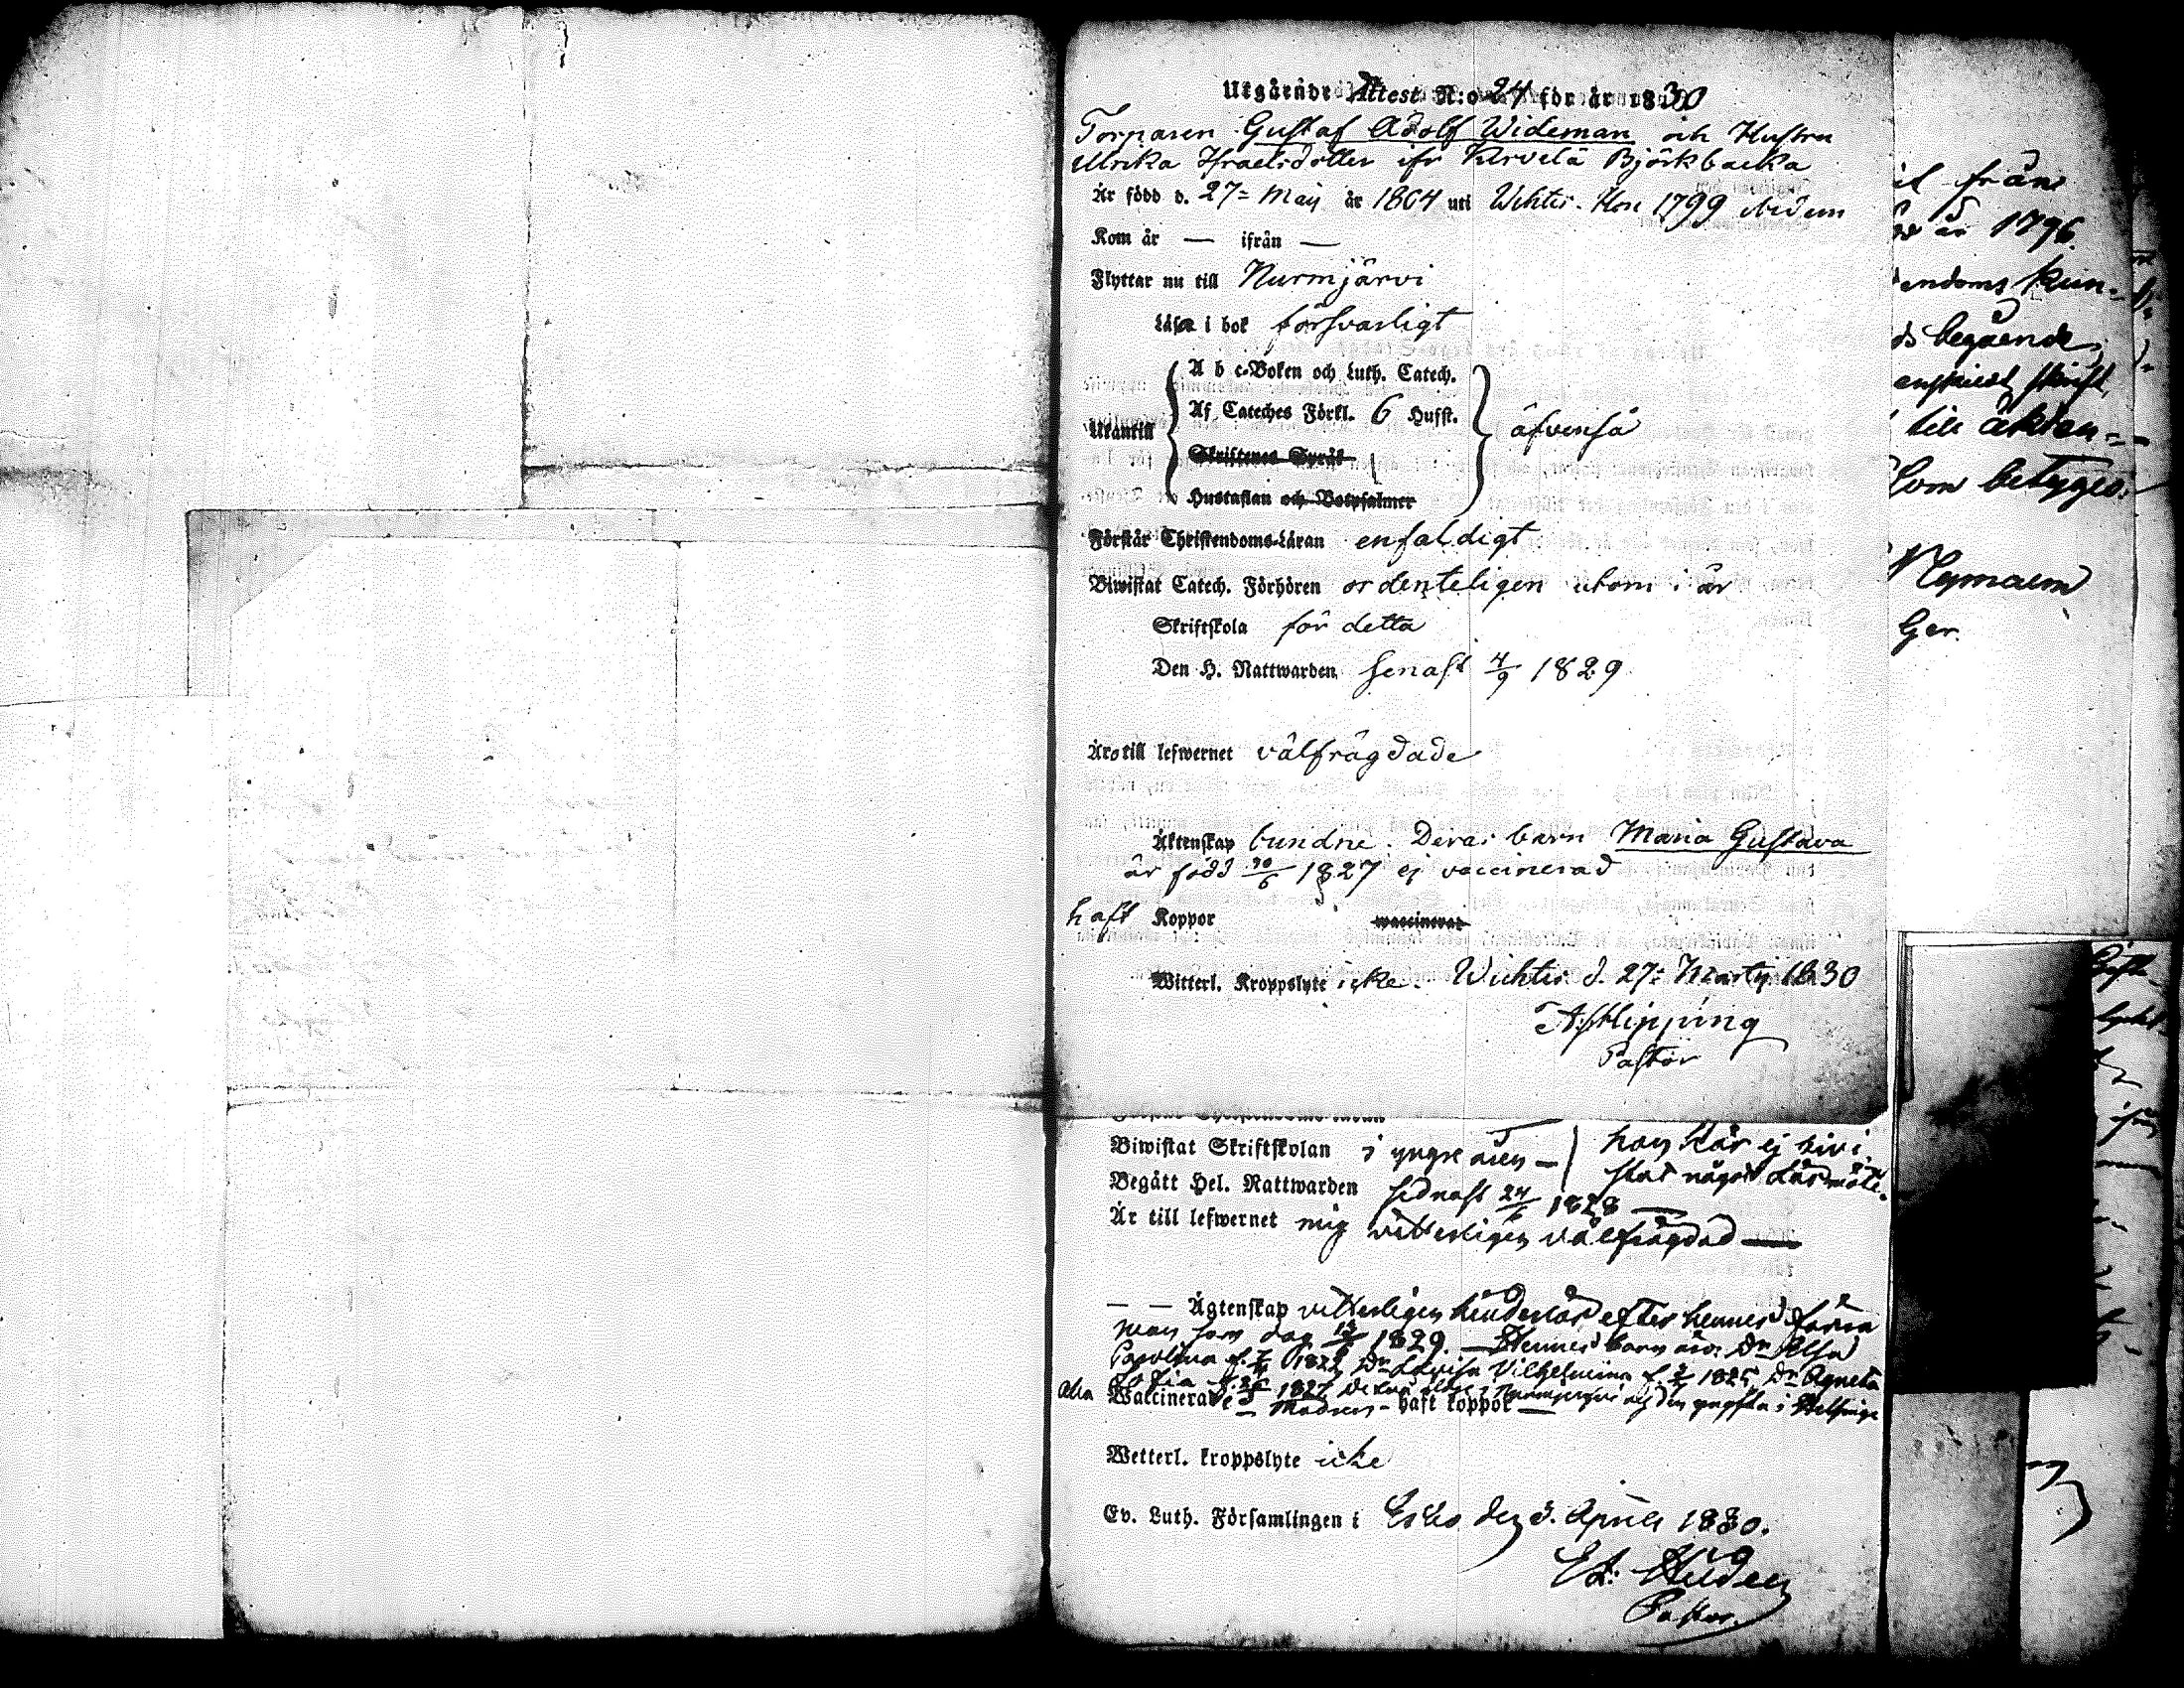 Utgående Attest N:o 24 för år 1830
Torparen Gustaf Adolf Wideman och Hustru
Ulrika Israelsdotter ifr Kervelä Björkbacka
Är född d. 27= Maij år 1804 uti Wihtis. Hon 1799 ibidem
Kom år — ifrån —
Flyttar nu till Nurmjärvi
Läser i bok försvarligt
Utantill
A b c-Boken och Luth. Catech.
Af Cateches Förkl. 6 Hufst.
Skriftenes Språk
Hustaflan och Botpsalmer
äfvenså
Förstår Christendoms-Läran enfaldigt
Biwistat Catech. Förhören ordenteligen utom i år
Skriftskola för detta
Den H. Nattwarden senast 4/9 1829
Äro till lefwernet välfrägdade
Äktenskap bundne. Deras barn Maria Gustava
är född 30/6 1827 ej vaccinerad
haft Koppor waccinerat
Witterl. Kroppslyte icke. Wichtis d. 27: Martij 1830
Pastor
Biwistat Skriftskolan i yngre åren —
hon har ej bivi-
stat något Läsmöte.
Begått Hel. Nattwarden sednast 24/6 1828 —
Är till lefwernet mig vitterligen välfrägdad —
— — Ägtenskap vitterligen hinderlös efter hennes förra
man som dog 1829. — Hennes barn äro: Dr Ulla
Carolina f. 1822 Dr Lovisa Vilhelmina f. 1825 Dr Agneta
Sofia f. 1827
Waccinerade — Modren - haft koppor —
Wetterl. kroppslyte icke
Ev. Luth. Församlingen i Esbo den 3. April 1830.
Pastor.
it från
år 1796.
endoms kun-
ds begående,
enskildt skrift
till äkten-
som betyges.